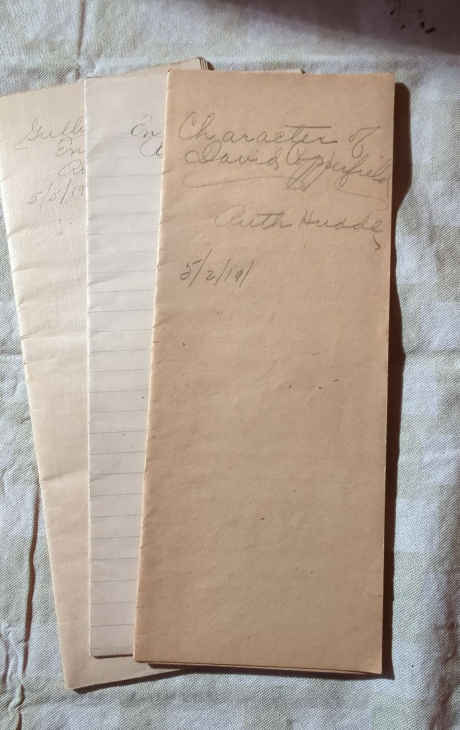 Gulli
En
5/5/19
En
Character of
David Copperfield
Ruth Hudd
5/2/19/